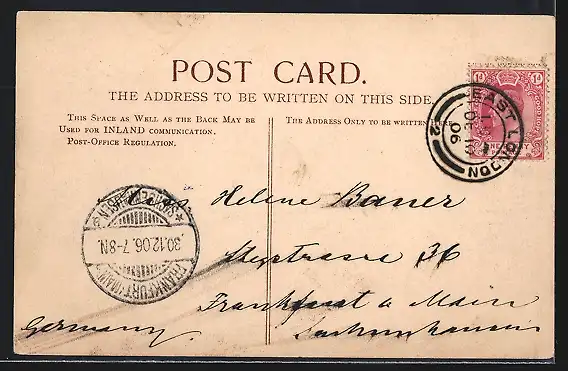 POST CARD.
THE ADDRESS TO BE WRITTEN ON THIS SIDE.
THIS SPACE AS WELL AS THE BACK MAY BE
USED FOR INLAND COMMUNICATION.
POST-OFFICE REGULATION.
THE ADDRESS ONLY TO BE WRITTEN HERE
1d 1d
EAST LONDON
06
2
Helene Bauer
36
Frankfurt a Main
Sachsenhausen
Germany
30.12.06. 7-8N.
FRANKFURT (MAIN)